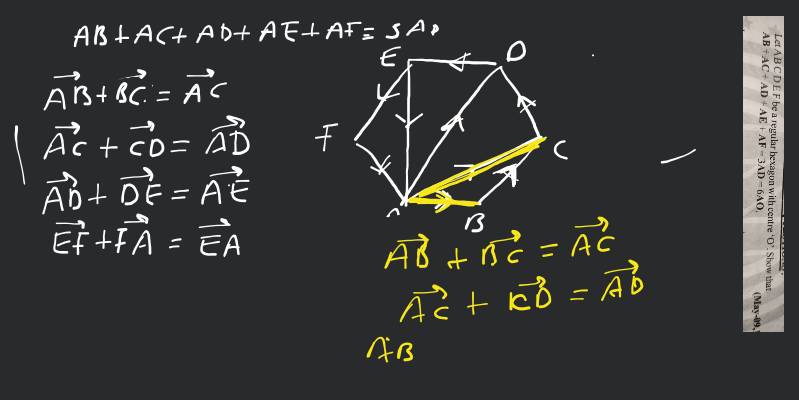 AB + AC + AD + AE + AF = 3AD
AB + BC = AC
AC + CD = AD
AD + DE = AE
EF + FA = EA
E
D
F
C
A
B
AB + BC = AC
AC + CD = AD
AB
Let A B C D E F be a regular hexagon with centre 'O'. Show that
AB + AC + AD + AE + AF = 3AD = 6AO.
(May-09,